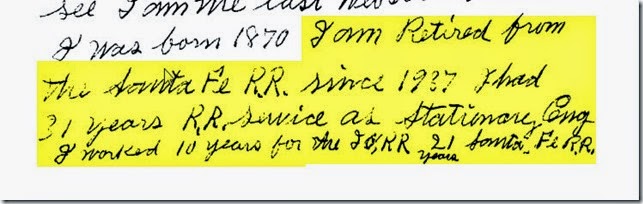 see I am the last
I was born 1870 I am Retired from
the Santa Fe R.R. since 1937 I had
31 years R.R. service as Stationary Eng
I worked 10 years for the RR 21 years Santa Fe R.R.